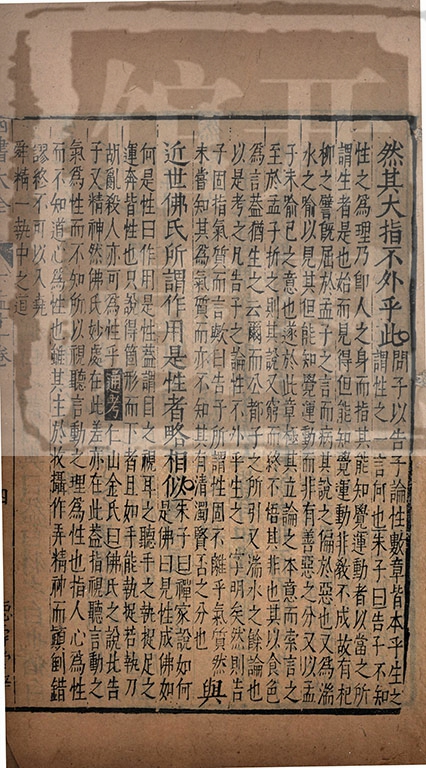 然其大指不外乎此
問子以告子論性數章皆本乎生之
謂性之一言何也朱子曰告子不知
性之為理乃即人之身而指其能知覺運動者以當之所
謂生者是也始而見得但能知覺運動非教不成故有杞
柳之譬既屈於孟子之言而病其說之偏於惡也又為湍
水之喻以見其但能知覺運動而非有善惡之分又以孟
子未喻已之意也遂於此章極其立論之本意而索言之
至於孟子折之則其說又窮而終不悟其非也其以食色
為言蓋猶生之云爾而公都子之所引又湍水之餘論也
以是考之凡告子之論性不外乎生之一字明矣然則告
子固指氣質而言歟曰告子所謂性固不離乎氣質然
未嘗知其為氣質而亦不知其有清濁賢否之分也
與
近世佛氏所謂作用是性者略相似
朱子曰禪家說如何
是佛曰見性成佛如
何是性曰作用是性蓋謂目之視耳之聽手之執捉足之
運奔皆性也只說得箇形而下者且如手能執捉若執刀
胡亂殺人亦可為性乎 通考 仁山金氏曰佛氏之說此告
子又精神然佛氏妙處在此差亦在此蓋指視聽言動之
氣為性而不知所以視聽言動之理為性也指人心為性
而不知道心為性也雖其主於收攝作弄精神而顛倒錯
謬終不可以入堯
舜精一執中之道
書大全
四